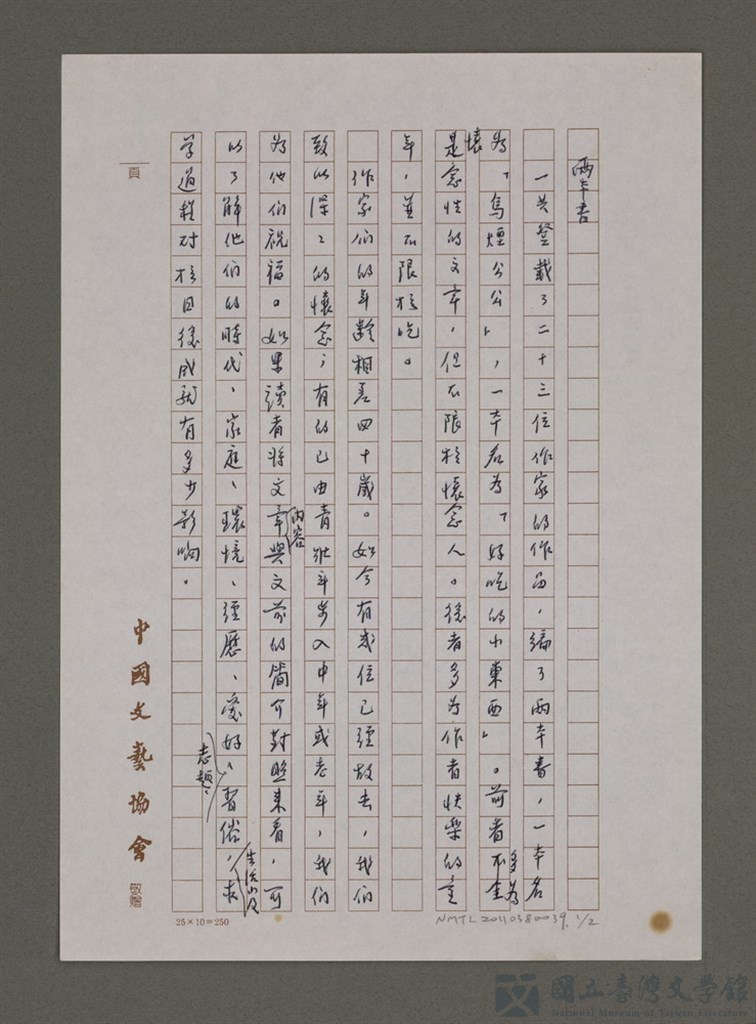 兩本書
一共登載了二十三位作家的作品,編了兩本書,一本名
為「烏煙公公」,一本名為「好吃的小東西」。前者多為
懷
是念性的文章,但不限於懷念人。後者多為作者快樂的童
年,並不限於吃。
作家們的年齡相差四十歲。如今有幾位已經故去,我們
致以深深的懷念;有的已由青壯年步入中年或老年,我們
為他們祝福。如果讀者將文章內容與文前的簡介對照來看,可
以了解他們的時代、家庭、環境、經歷、愛好、志趣、習俗、生活以及求
学過程对於日後成就有多少影响。
頁
中國文藝協會
敬贈
25×10=250
NMTL20110380039. 1/2
國立臺灣文學館
National Museum of Taiwan Literature